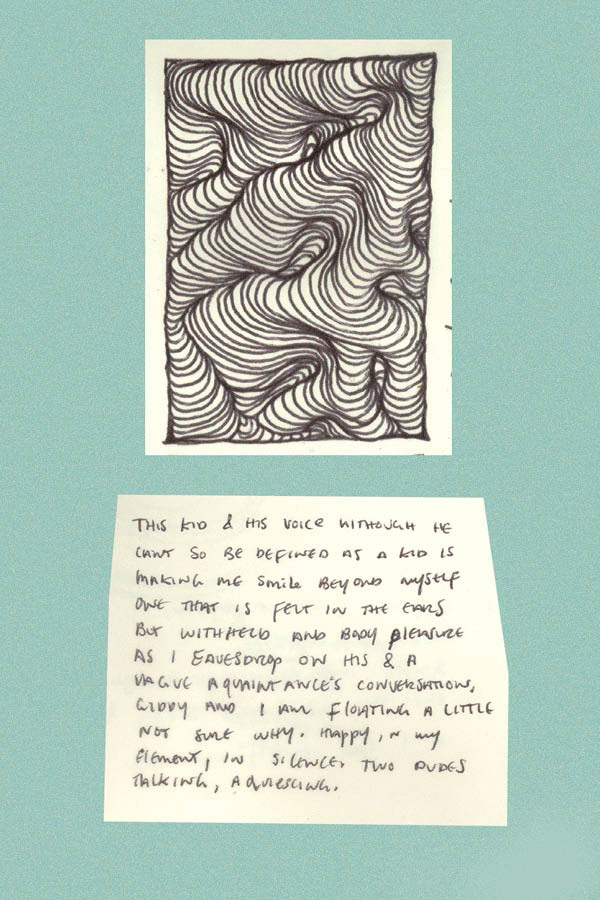 THIS KID & HIS VOICE ALTHOUGH HE
CANT SO BE DEFINED AS A KID IS
MAKING ME SMILE BEYOND MYSELF
ONE THAT IS FELT IN THE EARS
BUT WITHHELD AND BODY PLEASURE
AS I EAVESDROP ON HIS & A
VAGUE AQUAINTANCE'S CONVERSATION,
GIDDY AND I AM FLOATING A LITTLE
NOT SURE WHY. HAPPY, IN MY
ELEMENT, IN SILENCE. TWO DUDES
TALKING, AQUIESCING.